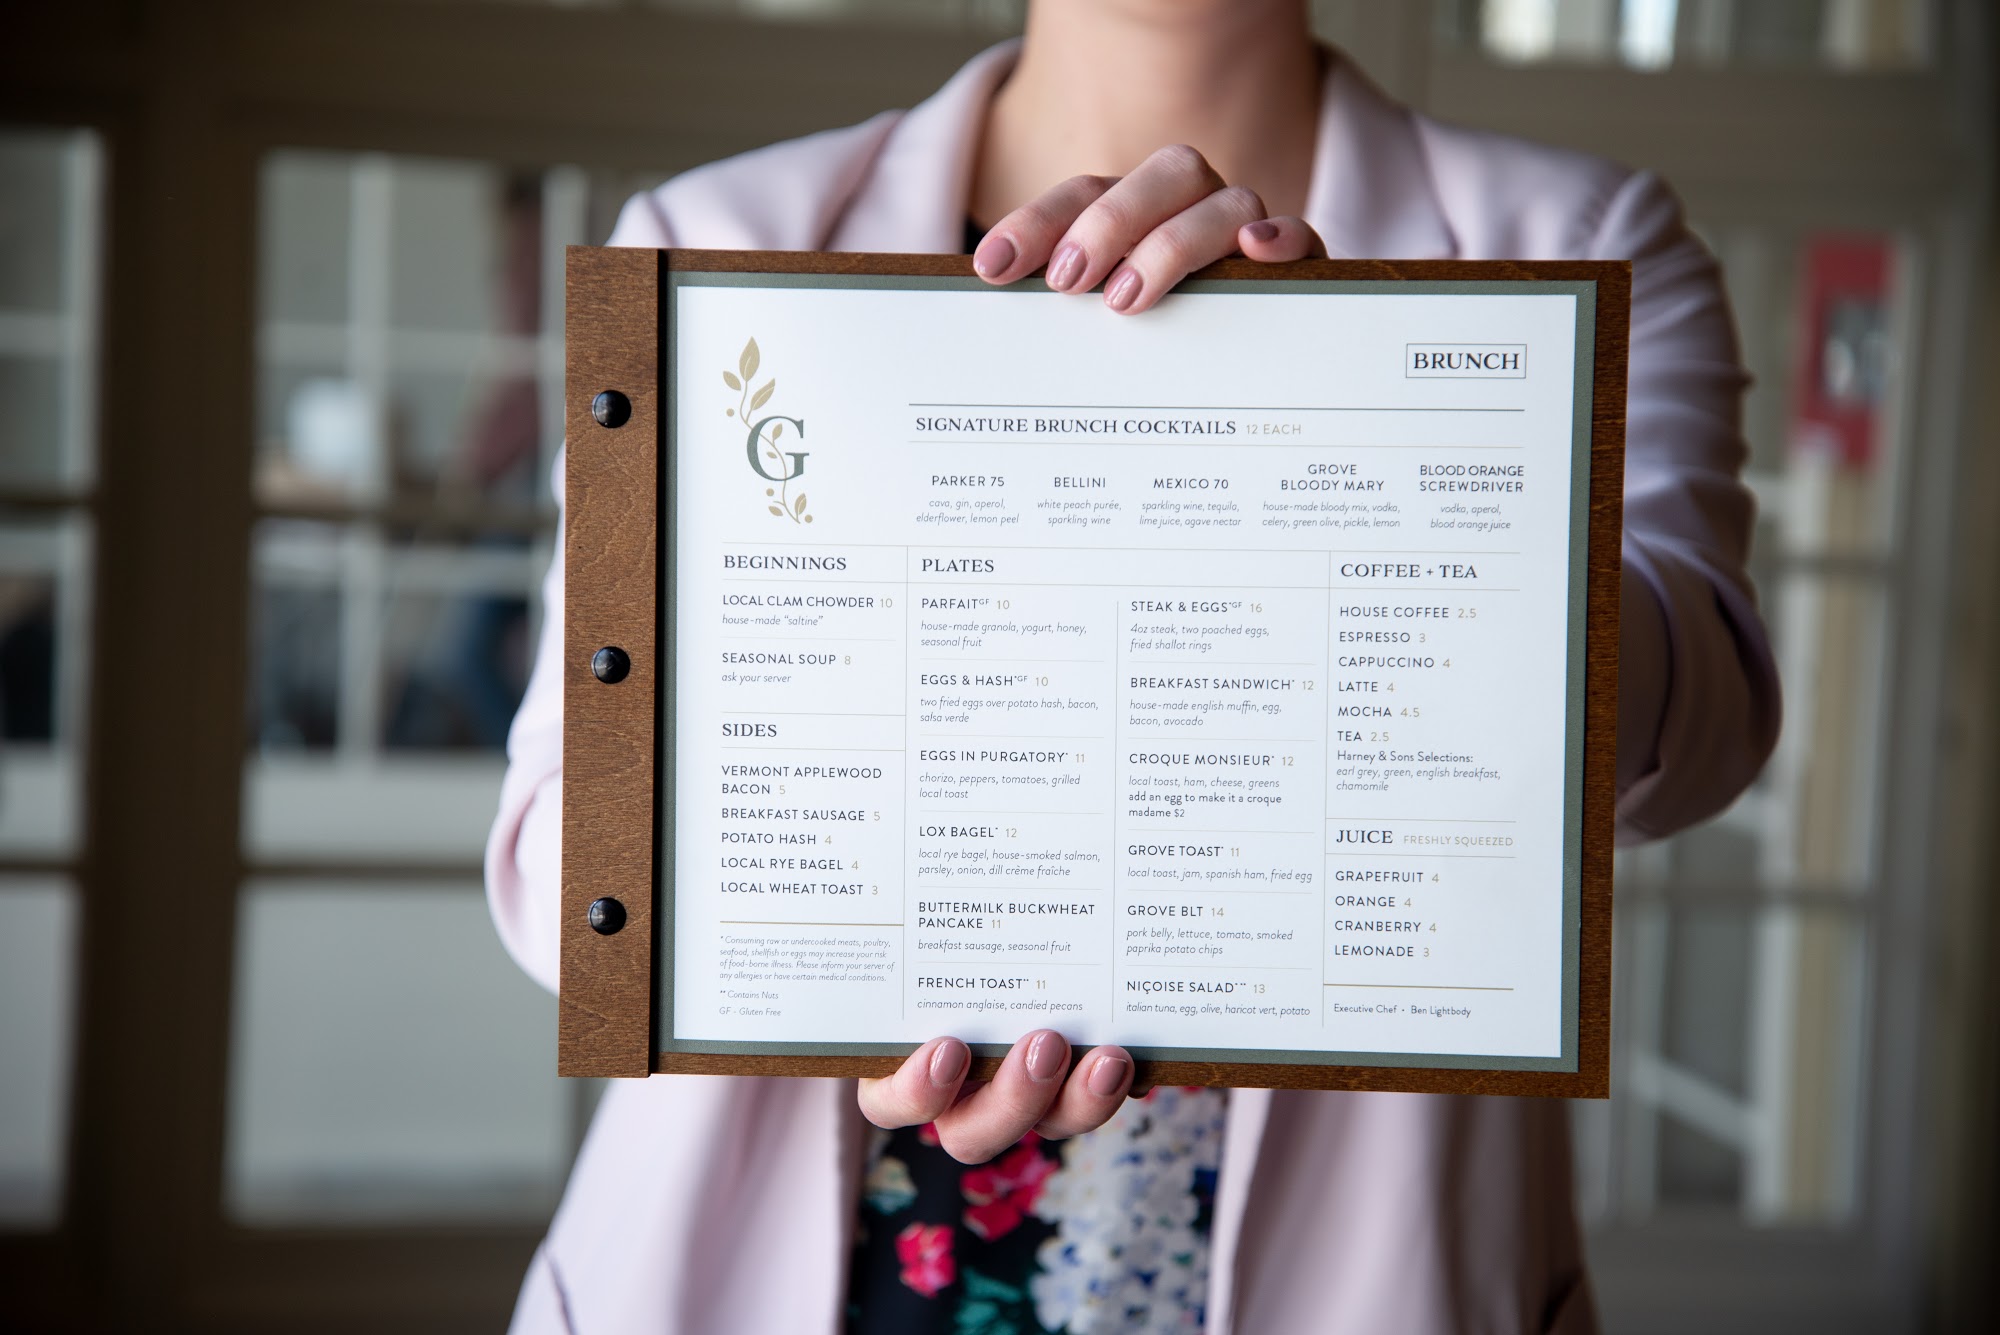 G
BRUNCH
SIGNATURE BRUNCH COCKTAILS 12 EACH
PARKER 75
cava, gin, aperol,
elderflower, lemon peel
BELLINI
white peach purée,
sparkling wine
MEXICO 70
sparkling wine, tequila,
lime juice, agave nectar
GROVE
BLOODY MARY
house-made bloody mix, vodka,
celery, green olive, pickle, lemon
BLOOD ORANGE
SCREWDRIVER
vodka, aperol,
blood orange juice
BEGINNINGS
LOCAL CLAM CHOWDER 10
house-made "saltine"
SEASONAL SOUP 8
ask your server
SIDES
VERMONT APPLEWOOD
BACON 5
BREAKFAST SAUSAGE 5
POTATO HASH 4
LOCAL RYE BAGEL 4
LOCAL WHEAT TOAST 3
* Consuming raw or undercooked meats, poultry,
seafood, shellfish or eggs may increase your risk
of food-borne illness. Please inform your server of
any allergies or have certain medical conditions.
** Contains Nuts
GF - Gluten Free
PLATES
PARFAIT GF 10
house-made granola, yogurt, honey,
seasonal fruit
EGGS & HASH*GF 10
two fried eggs over potato hash, bacon,
salsa verde
EGGS IN PURGATORY* 11
chorizo, peppers, tomatoes, grilled
local toast
LOX BAGEL* 12
local rye bagel, house-smoked salmon,
parsley, onion, dill crème fraîche
BUTTERMILK BUCKWHEAT
PANCAKE 11
breakfast sausage, seasonal fruit
FRENCH TOAST** 11
cinnamon anglaise, candied pecans
STEAK & EGGS*GF 16
4oz steak, two poached eggs,
fried shallot rings
BREAKFAST SANDWICH* 12
house-made english muffin, egg,
bacon, avocado
CROQUE MONSIEUR* 12
local toast, ham, cheese, greens
add an egg to make it a croque
madame $2
GROVE TOAST* 11
local toast, jam, spanish ham, fried egg
GROVE BLT 14
pork belly, lettuce, tomato, smoked
paprika potato chips
NIÇOISE SALAD*** 13
italian tuna, egg, olive, haricot vert, potato
COFFEE + TEA
HOUSE COFFEE 2.5
ESPRESSO 3
CAPPUCCINO 4
LATTE 4
MOCHA 4.5
TEA 2.5
Harney & Sons Selections:
earl grey, green, english breakfast,
chamomile
JUICE FRESHLY SQUEEZED
GRAPEFRUIT 4
ORANGE 4
CRANBERRY 4
LEMONADE 3
Executive Chef • Ben Lightbody